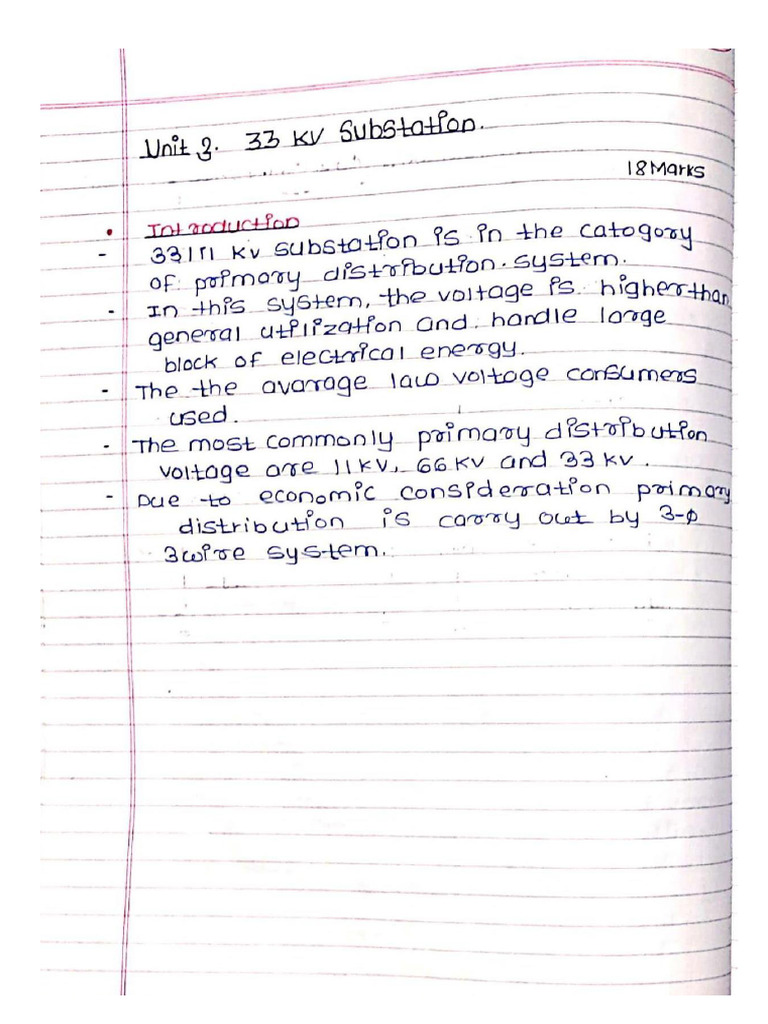 Unit 3. 33 KV Substation.
18 Marks
• Introduction
- 33/11 KV substation is in the catogory
of primary distribution. system.
- In this system, the voltage is higher than
general utilization and handle large
block of electrical energy.
- The the avarage law voltage consumers
used.
- The most commonly primary distribution
voltage are 11KV, 66 KV and 33 KV.
- Due to economic consideration primary
distribution is carry out by 3-ø
3wire system.